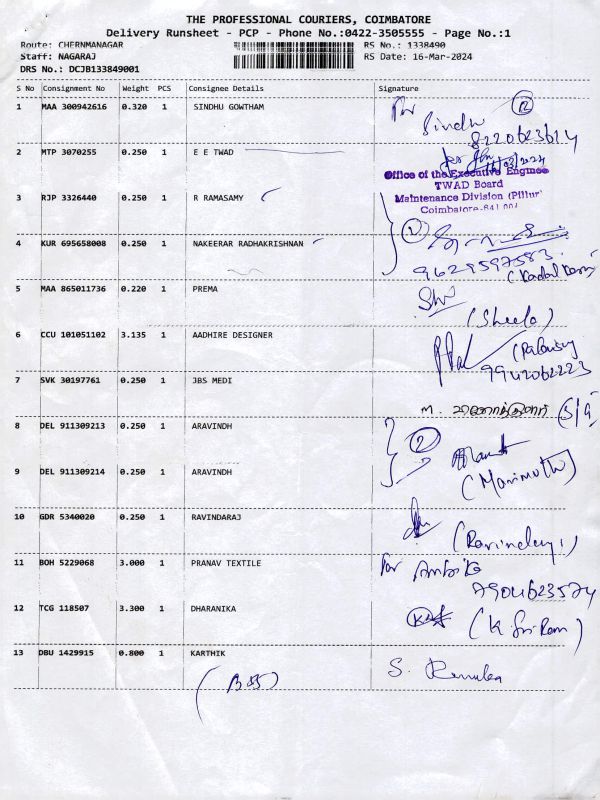 THE PROFESSIONAL COURIERS, COIMBATORE
Delivery Runsheet - PCP - Phone No.:0422-3505555 - Page No.:1
Route: CHERNMANAGAR RS No.: 1338490
Staff: NAGARAJ RS Date: 16-Mar-2024
DRS No.: DCJB133849001
S No Consignment No Weight PCS Consignee Details Signature
1 MAA 300942616 0.320 1 SINDHU GOWTHAM
Sindhu
8220623614
2 MTP 3070255 0.250 1 E E TWAD
Office of the Executive Enginee
TWAD Board
3 RJP 3326440 0.250 1 R RAMASAMY Maintenance Division (Pillur)
Coimbatore-641 001
4 KUR 695658008 0.250 1 NAKEERAR RADHAKRISHNAN
1
9629597583
5 MAA 865011736 0.220 1 PREMA
(Sheela)
6 CCU 101051102 3.135 1 AADHIRE DESIGNER
9942062223
7 SVK 30197761 0.250 1 JBS MEDI
8 DEL 911309213 0.250 1 ARAVINDH
2
9 DEL 911309214 0.250 1 ARAVINDH
(Marimuthu)
10 GDR 5340020 0.250 1 RAVINDARAJ
11 BOH 5229068 3.000 1 PRANAV TEXTILE
for Ambika
7904623574
12 TCG 118507 3.300 1 DHARANIKA
(K Sri Ram)
13 DBU 1429915 0.800 1 KARTHIK
S. Renuka